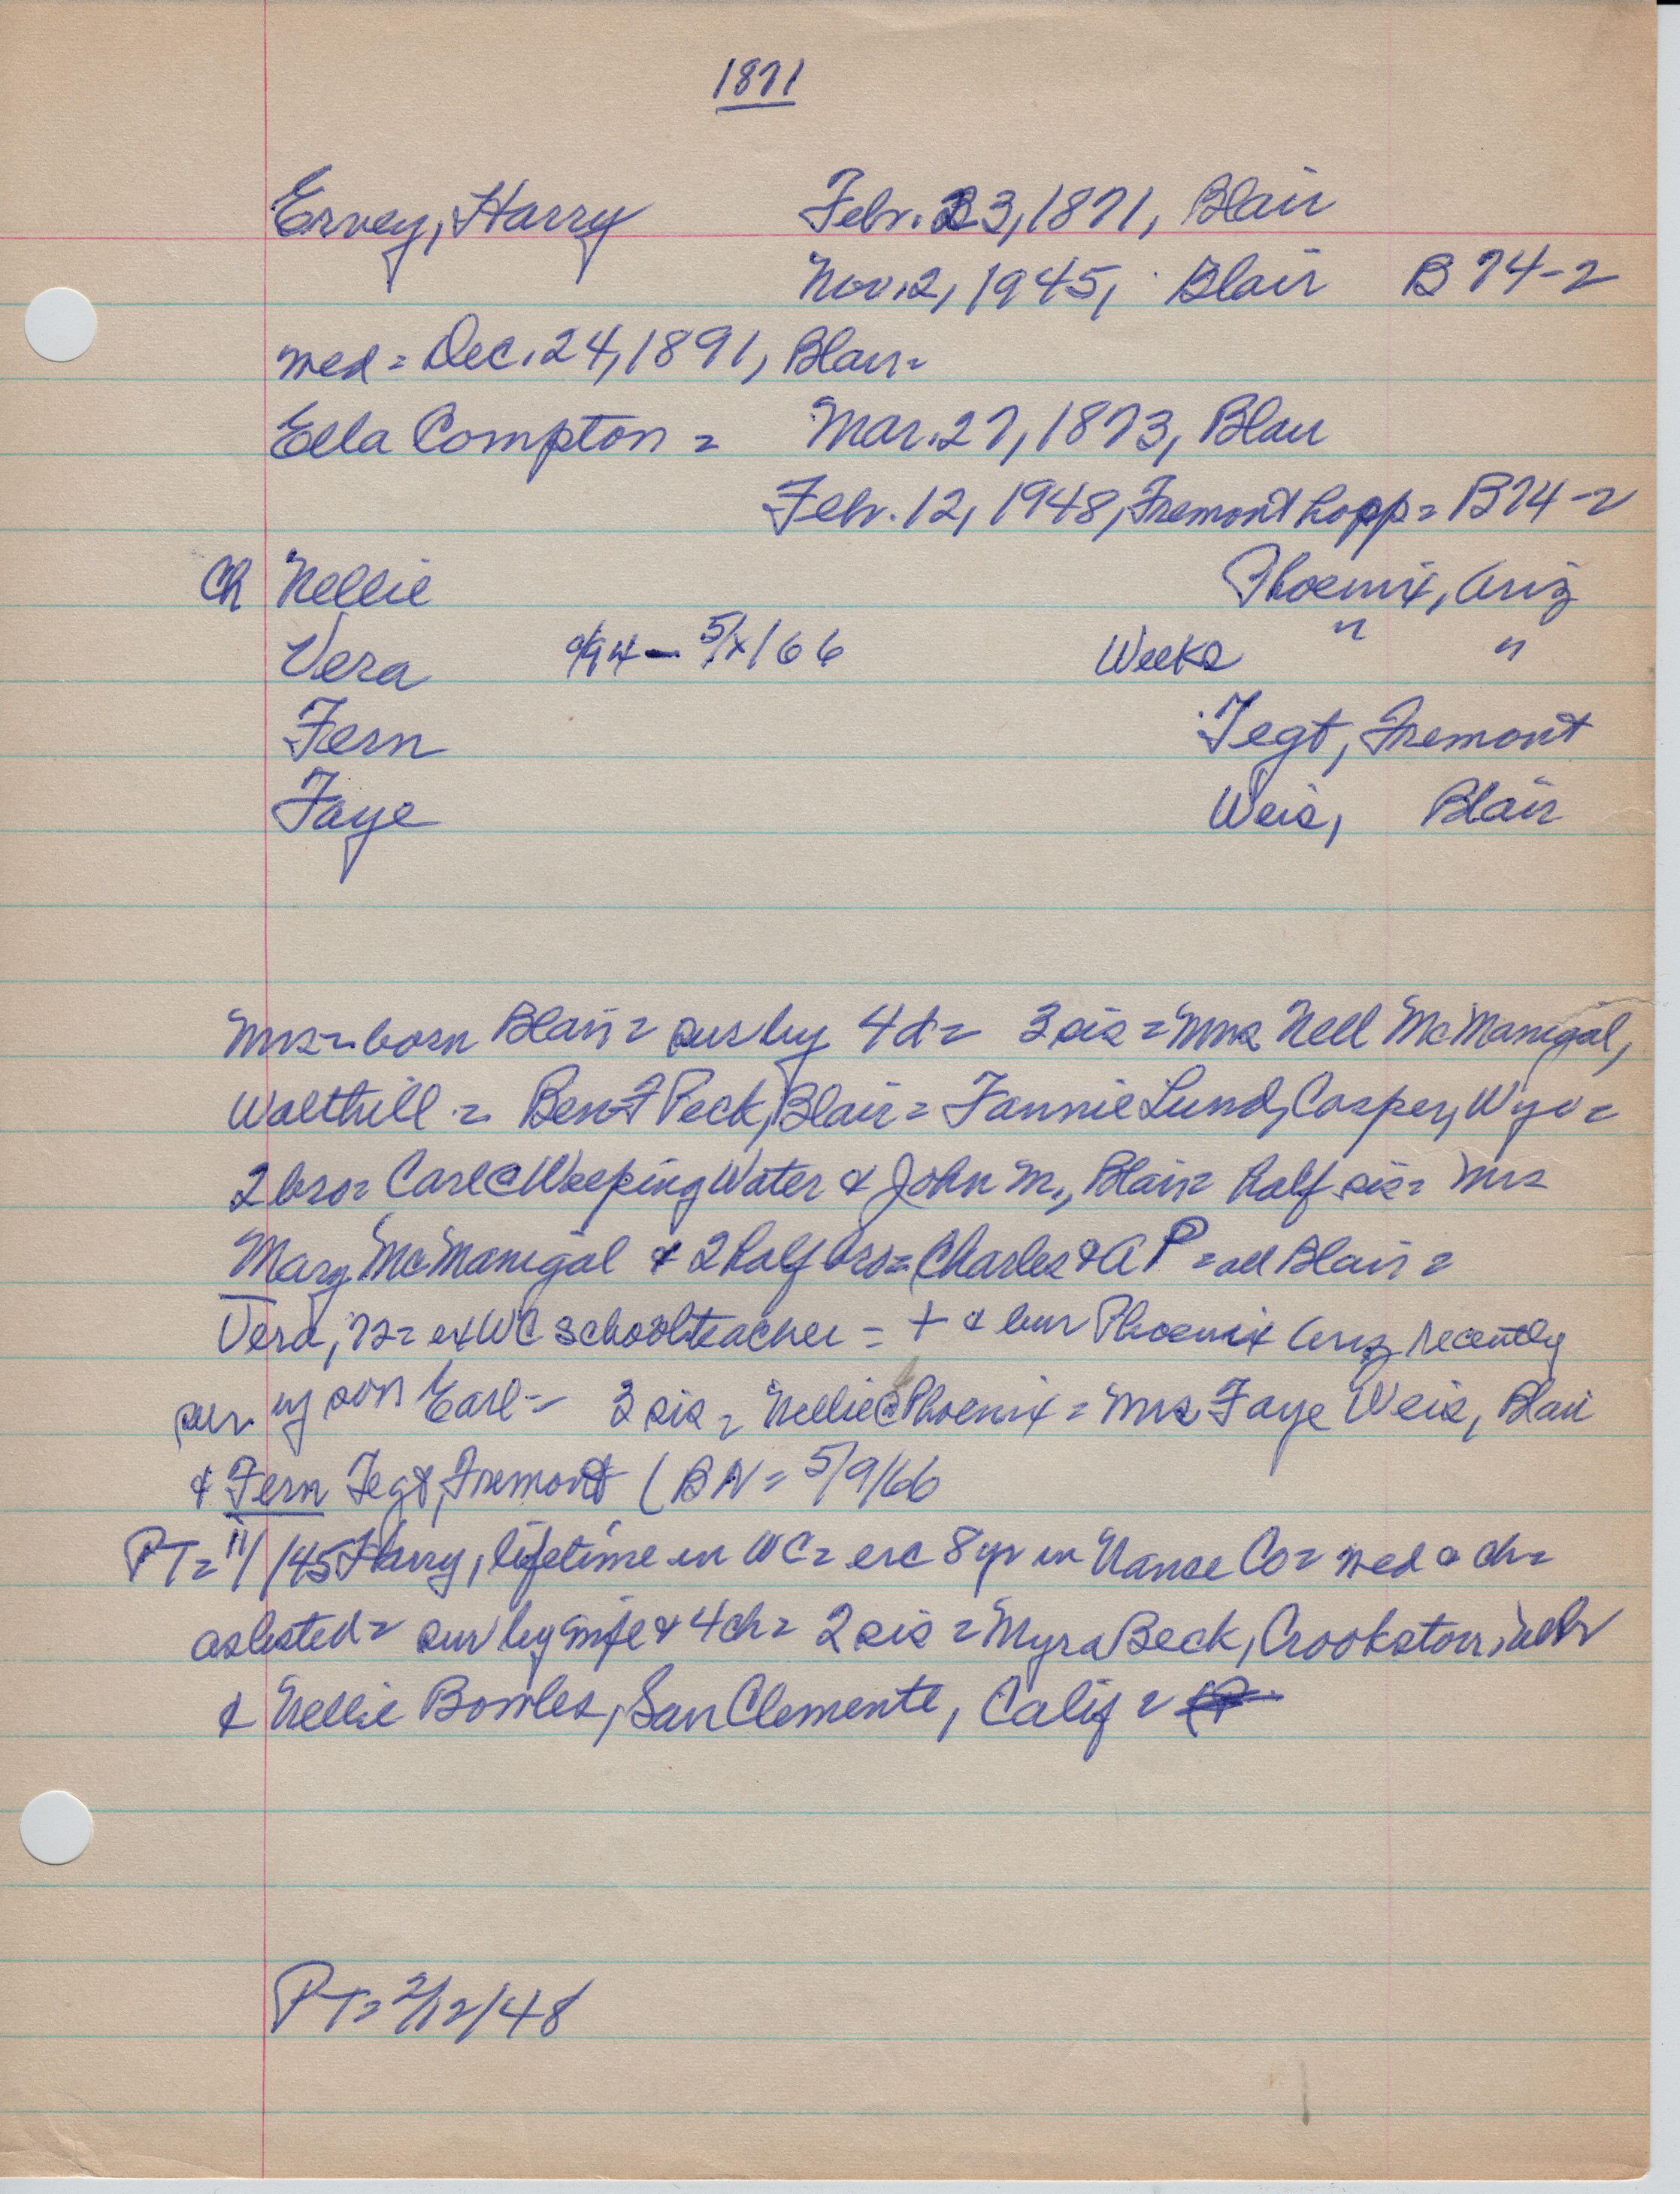 1871
Ervey, Harry Febr. 23, 1871, Blair
Nov. 2, 1945, Blair B 74-2
med = Dec. 24, 1891, Blair =
Ella Compton = Mar. 27, 1873, Blair
Febr. 12, 1948, Fremont hosp = B74-2
Ch Nellie Phoenix, Ariz
Vera 94 - 5/x/66 Weeks " "
Fern Tegt, Fremont
Faye Weis, Blair
Mrs = born Blair = sur by 4 d = 3 sis = Mrs Nell McManigal,
Walthill = Ben F Peck, Blair = Fannie Lund, Casper, Wyo =
2 bro = Carl @ Weeping Water & John M., Blair = half sis = Mrs
Mary McManigal & 2 half bro = Charles & A P = all Blair =
Vera, 72 = ex WC schoolteacher = + & bur Phoenix Ariz recently
sur by son Earl = 3 sis = Nellie @ Phoenix = Mrs Faye Weis, Blair
& Fern Tegt, Fremont (BN = 5/9/66
PT = 11/ /45 Harry, lifetime in WC = exc 8 yr in Nance Co = med & ch =
as listed = sur by wife & 4 ch = 2 sis = Myra Beck, Crookston, Nebr
& Nellie Bowles, San Clemente, Calif =
PT = 2/12/48